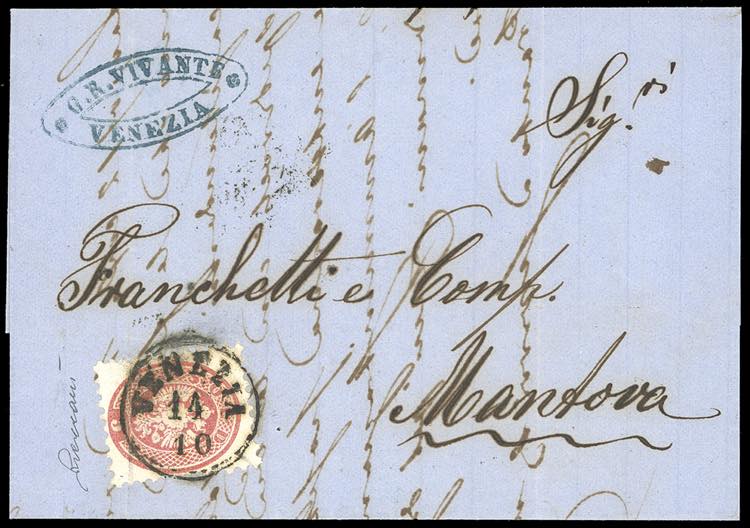 G. R. VIVANTE
VENEZIA
Sig.ri
Franchetti e Comp.
Mantova
VENEZIA
14
10